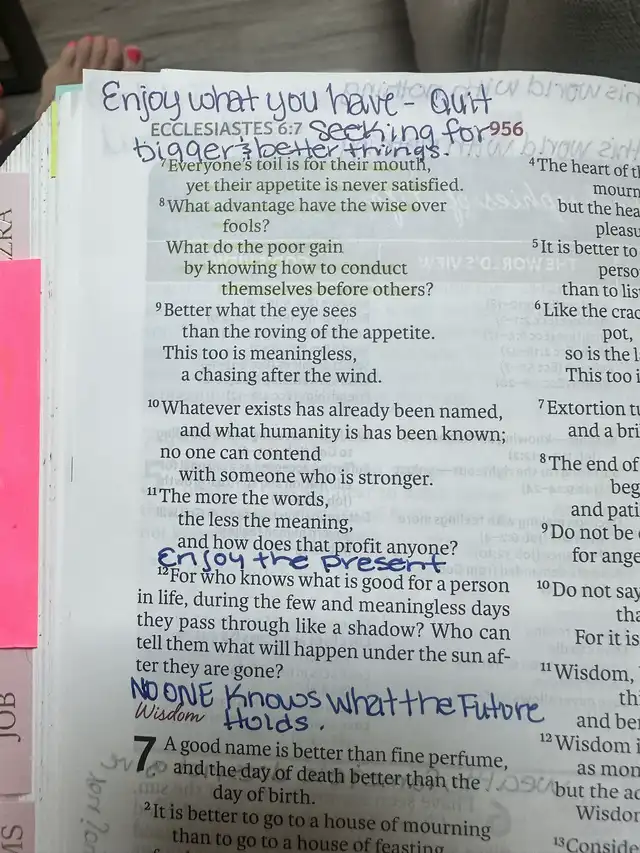 Enjoy what you have - Quit
ECCLESIASTES 6:7 seeking for 956
bigger & better things.
7 Everyone's toil is for their mouth,
yet their appetite is never satisfied.
8 What advantage have the wise over
fools?
What do the poor gain
by knowing how to conduct
themselves before others?
9 Better what the eye sees
than the roving of the appetite.
This too is meaningless,
a chasing after the wind.
10 Whatever exists has already been named,
and what humanity is has been known;
no one can contend
with someone who is stronger.
11 The more the words,
the less the meaning,
and how does that profit anyone?
Enjoy the present
12 For who knows what is good for a person
in life, during the few and meaningless days
they pass through like a shadow? Who can
tell them what will happen under the sun af-
ter they are gone?
NO ONE Knows What the Future
Wisdom Holds.
7 A good name is better than fine perfume,
and the day of death better than the
day of birth.
2 It is better to go to a house of mourning
than to go to a house of feasting,
4 The heart of
mourn
but the
pleasu
5 It is better to
perso
than to
6 Like the
pot,
so is the
This too
7 Extortion
and a
8 The end of
beg
and
9 Do not be
for
10 Do not say
For it is
11 Wisdom,
and
12 Wisdom
as
but the
Wisdom
13
JOB